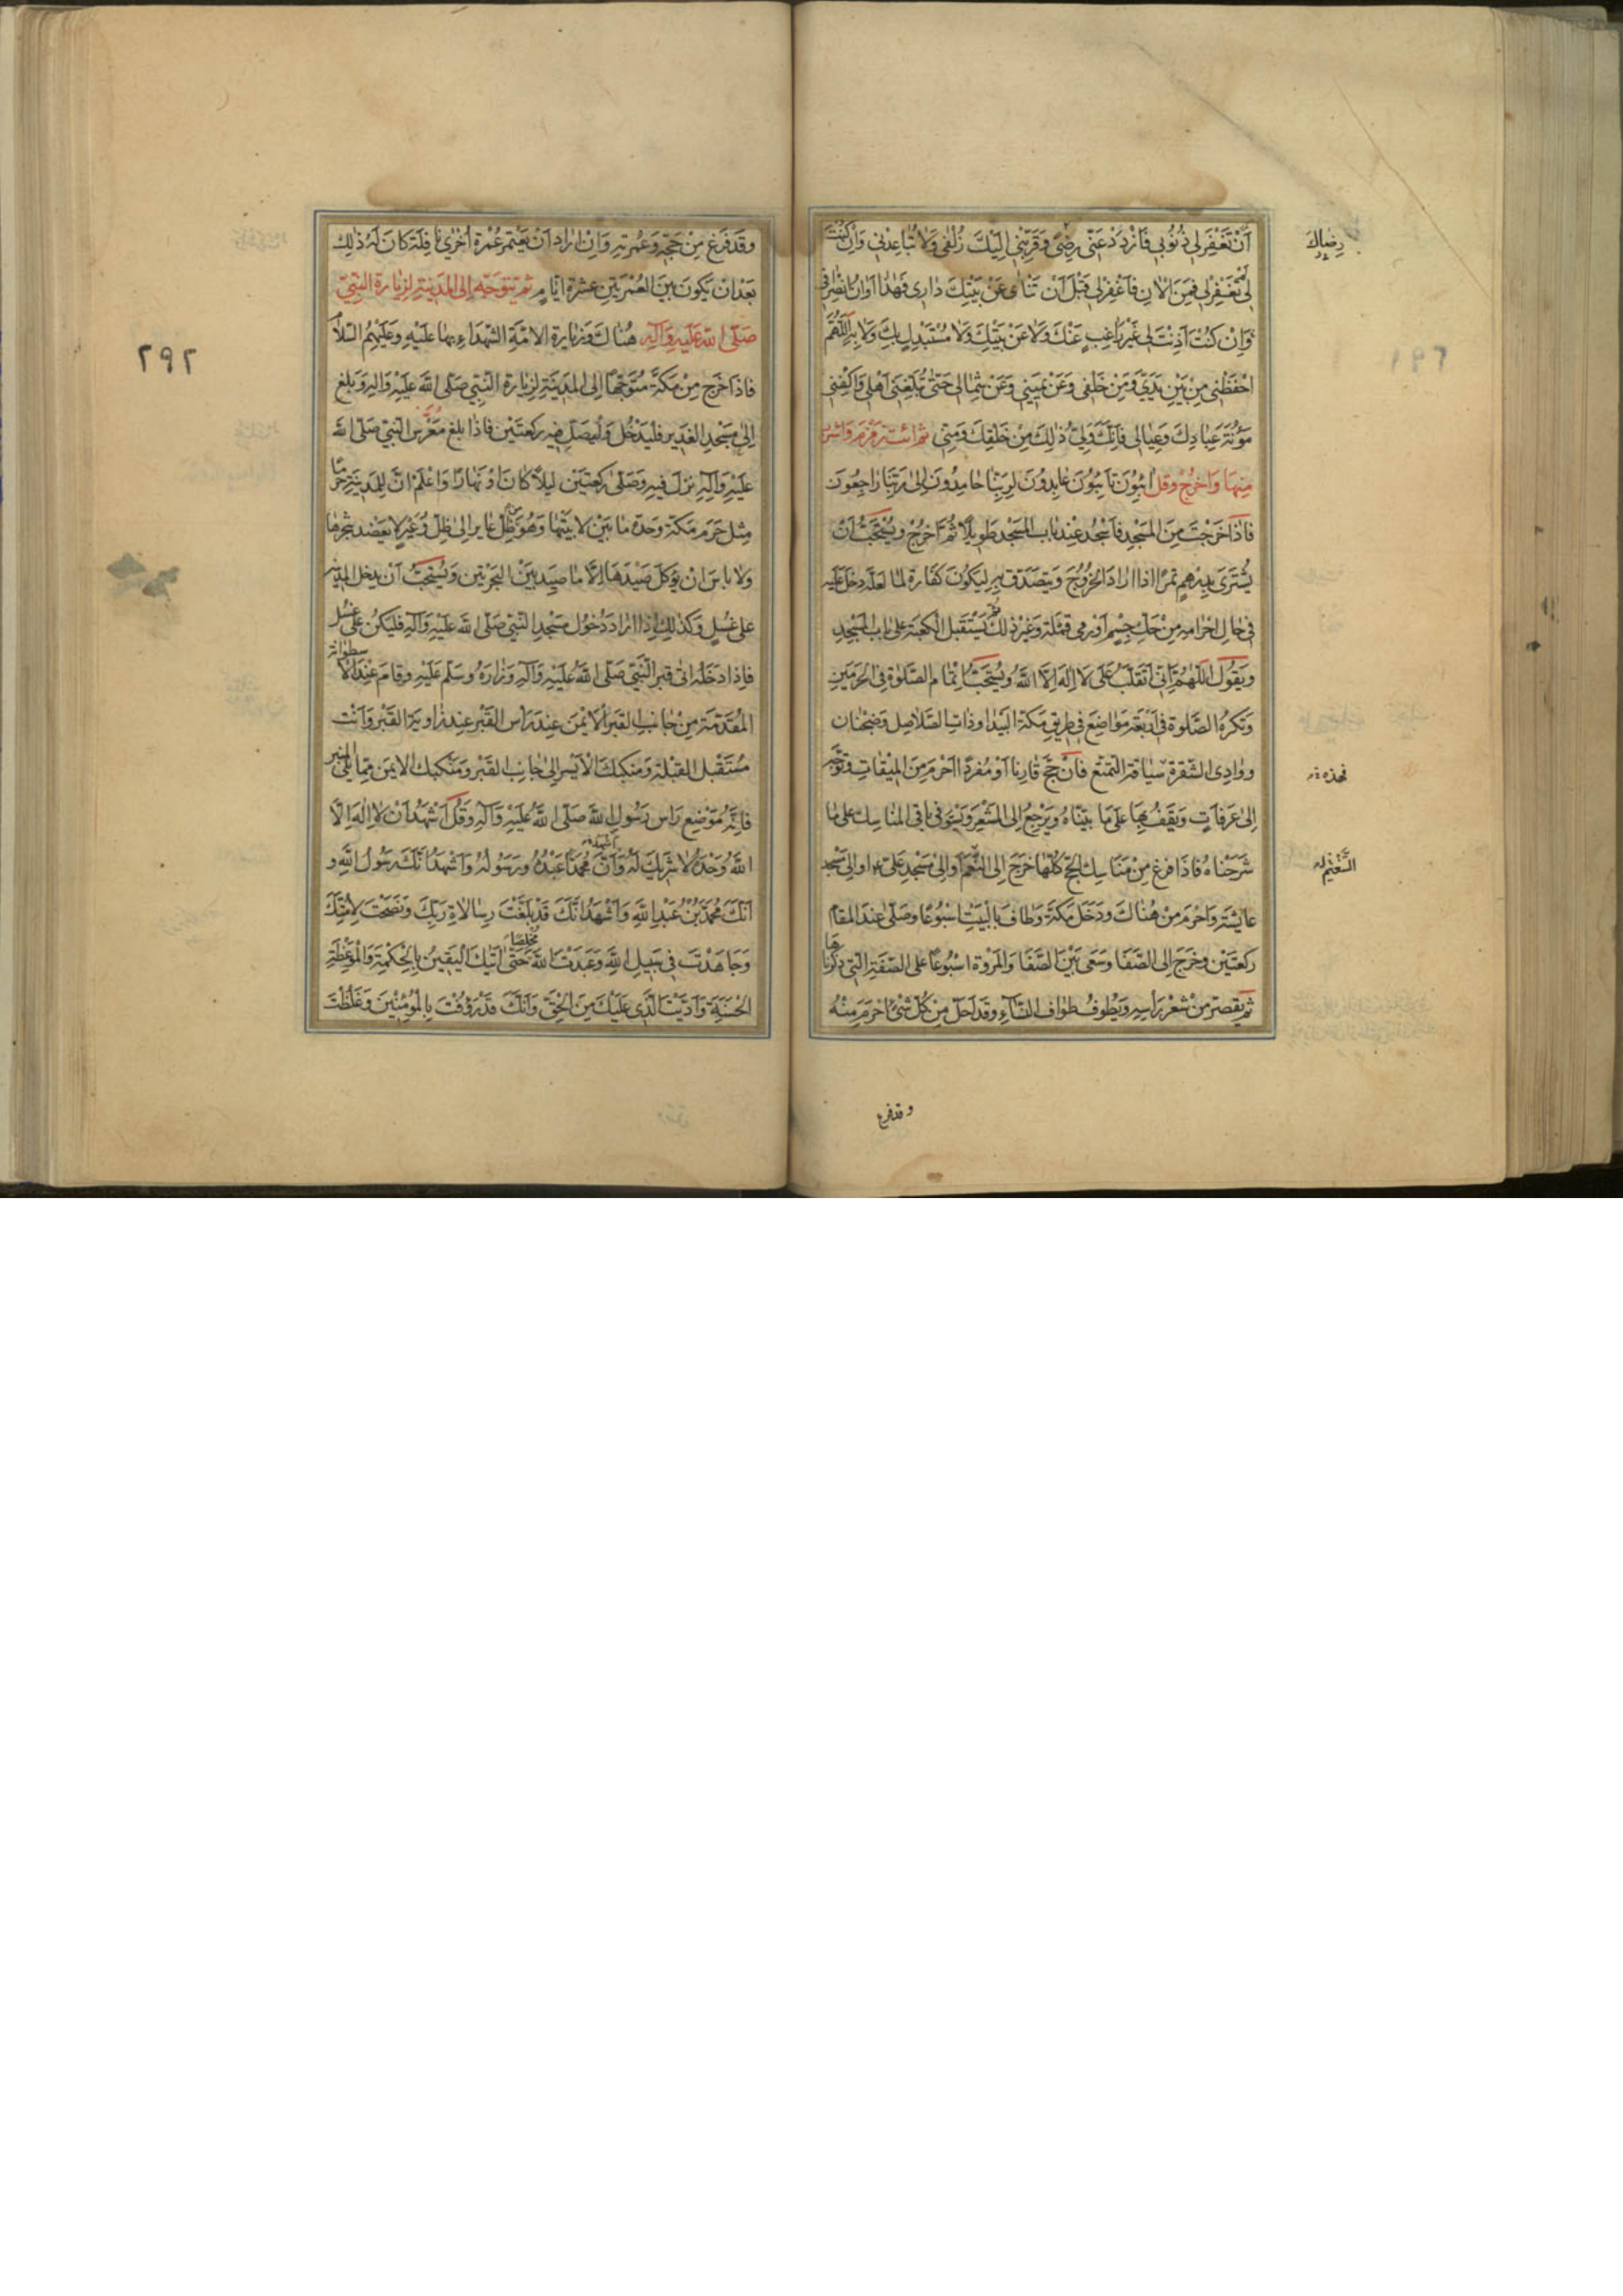 اَنْ تَغْفِرَ لِي ذُنُوبِي فَازْدَدْ عَنّي رِضًى وَقَرِّبْنِي اِلَيْكَ زُلْفى وَلا تُباعِدْنِي وَاِنْ كُنْتَ
رِضاكَ
لَمْ تَغْفِرْ لِي فَمِنَ الْانِ فَاغْفِرْ لِي قَبْلَ اَنْ تَنْاى عَنْ بَيْتِكَ دارِي فَهٰذا اَوانُ انْصِرافِي
وَاِنْ كُنْتَ اَذِنْتَ لِي غَيْرَ راغِبٍ عَنْكَ وَلا عَنْ بَيْتِكَ وَلا مُسْتَبْدِلٍ بِكَ وَلا بِهِ اَللّٰهُمَّ
احْفَظْنِي مِنْ بَيْنِ يَدَيَّ وَمِنْ خَلْفِي وَعَنْ يَمِينِي وَعَنْ شِمالِي حَتّى تُبَلِّغَنِي اَهْلِي وَاكْفِنِي
مَؤُنَةَ عِبادِكَ وَعِيالِي فَاِنَّكَ وَلِيُّ ذٰلِكَ مِنْ خَلْقِكَ وَمِنّي ثم ائت زمزم واشرب
مِنها وَاخرُجْ وقل ائِبُونَ تائِبُونَ عابِدُونَ لِرَبِّنا حامِدُونَ اِلى رَبِّنا راجِعُونَ
فاذا خَرَجْتَ مِنَ المَسْجِدِ فاَسْجُد عِنْدَ باب المَسْجِد طَويلًا ثُمَّ اخرُجْ ويُسْتَحَبُّ اَنْ
يُشْتَرى بِدِرْهمٍ تمرًا اذا ارادَ الخُرُوجَ وَيتصدّق بِهِ لِيَكُونَ كَفّارة لما لعَلّه دخَل عَلَيه
في حال احْرامِه مِنْ حَكِّ جِسْمٍ اَوْ رمى قمّلة وَغَيْر ذلِكَ ثم يَسْتَقبل الكعبَة على باب المَسْجِدِ
وَيَقُول اَللّهُمَّ اِنّي اَنْقَلِبُ عَلى لا اِلٰهَ اِلّا اللّهُ ويُسْتَحَبُّ اتْمام الصَّلوة فى الحَرَمَينِ
وَتكرهُ الصَّلوة فى اَربَعَة مَواضِعَ فى طريق مَكّة البَيْداء وَذات الصّلاصِل وَضَجْنان
ووادِى الشُّقرة سياقة التمتّع فاَنْ حَجَّ قارِنا اَوْ مُفردًا اَحْرَمَ مِنَ المِيْقاتِ وتَوَجَّه
فهذه
اِلى عَرَفاتٍ وَيَقِفُ بِها عَلى مَا بيّنّاهُ وَيَرْجِعُ اِلى المَشْعَرِ وَيَسْتَوفى باقى المَناسِك على ما
شَرَحْناهُ فاذا فرغَ مِنْ مَناسِك الحَجّ كُلّها خَرَجَ اِلى التنعيم اَو اِلى مَسْجِدِ عَلىّ ع او اِلى مَسْجِد
التَّنْعِيْم
عايشة وَاحْرَمَ مِنْ هُناكَ وَدَخَلَ مَكّةَ وَطافَ بِالبَيْتِ اسْبُوعًا وَصَلّى عِندَ المقامِ
رَكعَتَيْنِ وخَرَجَ اِلى الصَّفا وَسَعى بَيْنَ الصَّفا وَالمَرْوة اسْبُوعًا على الصّفَةِ التي ذكرناها
ثم يقصّر مِنْ شَعْرِ رَاسِهِ وَيَطُوفُ طوافَ النّسَاءِ وقد اَحلّ مِن كُلّ شَىْءٍ احْرَمَ مِنْهُ
وقد فرغ
وقد فَرَغ مِنْ حَجّهِ وَعُمرتِهِ وَاِنْ ارادَ اَنْ يعتمر عُمْرة اُخرى نافِلَةً كانَ لَهُ ذلِك
بَعْدَ اَنْ يَكونَ بَيْنَ العُمْرَتَيْنِ عَشرة ايّامٍ ثم يتوَجّه اِلى المَدِينَةِ لزيارة النّبيّ
صَلّى اللّه عَلَيهِ وَآلِهِ هُناكَ وَزيارة الائمّةِ الشّهَداءِ بِها عَلَيْهِ وعَلَيْهِمُ السّلامُ
٢٩٢
فاذا خَرَج مِنْ مَكّةَ مُتَوَجِّهًا اِلى المَدِينَةِ لِزيارة النّبِي صَلّى اللّهُ عَلَيْهِ وَالِهِ وَبَلغ
اِلى مَسْجِدِ الغَدِير فليَدْخُل وَلْيُصَلّ فيه رَكعتَيْن فاذا بلغ مُعَرَّسَ النّبيّ صَلّى اللّه
عَلَيْهِ وَآلِهِ نزلَ فيهِ وَصَلّى رَكعتَيْن ليلًا كانَ اَوْ نَهارًا وَاعْلَم انّ لِلمَدِينَةِ حَرَمًا
مِثل حَرَم مَكّة وَحَدّه ما بَيْنَ لابتَيْها وَهُوَ مِنْ ظِلّ عايِرٍ اِلى ظِلّ وُعَيْرٍ لا يعْضَد شجرها
وَلا باسَ انْ يُؤكلَ صَيْدَها اِلّا ما صيدَ بَيْنَ الحَرّتَيْنِ وَيُسْتحَبُّ اَنْ يدخل المَدِينَة
على غسلٍ وَكَذلِكَ اِذا ارادَ دُخُول مَسْجِد النّبيّ صَلّى اللّه عَلَيْهِ وَآلِهِ فليَكن على غُسْلٍ
فاِذا دَخَلَهُ اتى قبرَ النَّبِيّ صَلّى اللّهُ عَلَيْهِ وَآلِهِ وَزارَهُ وَسَلّم عَلَيْهِ وقامَ عِنْدَ الاسطوانة
المُقدّمَة مِنْ جانب القبر الاَيْمَن عِنْدَ رَاس القَبْر عِنْدَ زاويَة القَبْر وَاَنْت
مُسْتَقْبِل القِبْلة وَمَنْكِبك الاَيْسر اِلى جانِب القَبْر ومَنْكِبك الايمَن مِمّا يَلى المِنبر
فاِنّهُ مَوْضِع رَاس رَسُولِ اللّه صَلّى اللّهُ عَلَيْهِ وَآلِهِ وَقُل اَشْهَدُ اَنْ لا اِلٰهَ اِلّا
اللّهُ وَحْدَهُ لا شَريكَ لَهُ وَاَشْهَدُ اَنَّ مُحَمَّدًا عَبْدُهُ وَرَسُولُهُ وَاَشْهَدُ اَنَّكَ رَسُولُ اللّهِ وَ
اَنَّكَ مُحَمَّدُ بْنُ عَبْدِ اللّهِ وَاَشْهَدُ اَنَّكَ قَدْ بَلَّغْتَ رِسالاتِ رَبِّكَ وَنَصَحْتَ لِاُمَّتِكَ
وَجاهَدْتَ فِي سَبِيلِ اللّهِ وَعَبَدْتَ اللّهَ مُخْلِصًا حَتّى اَتيكَ الْيَقِينُ بِالْحِكْمَةِ وَالْمَوْعِظَةِ
الْحَسَنَةِ وَاَدَّيْتَ الَّذِى عَلَيْكَ مِنَ الْحَقِّ وَاَنَّكَ قَدْ رَؤُفْتَ بِالْمُؤْمِنِينَ وَغَلُظْتَ